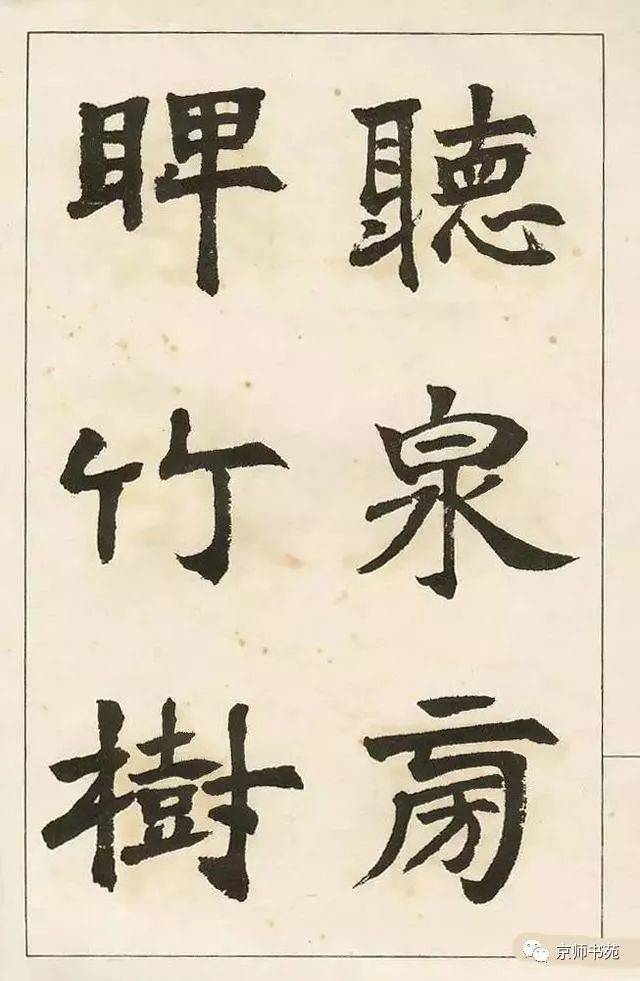 聽泉房
睥竹樹
京师书苑